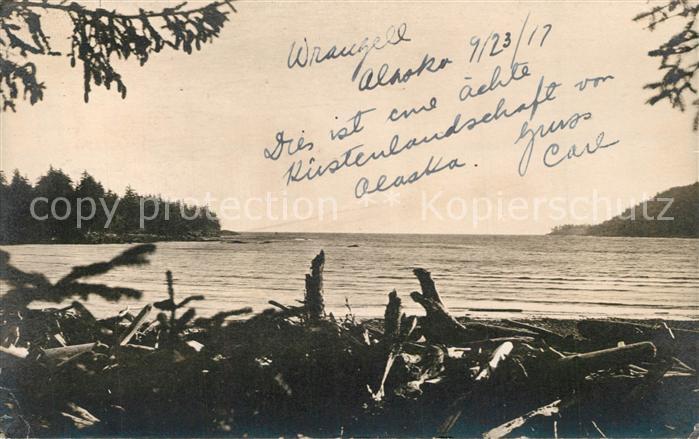 Wrangell
Alaska 9/23/17
Dies ist eine ächte
Küstenlandschaft von
Alaska. Gruss
Carl
** Copyright protection ** Kopierschutz **